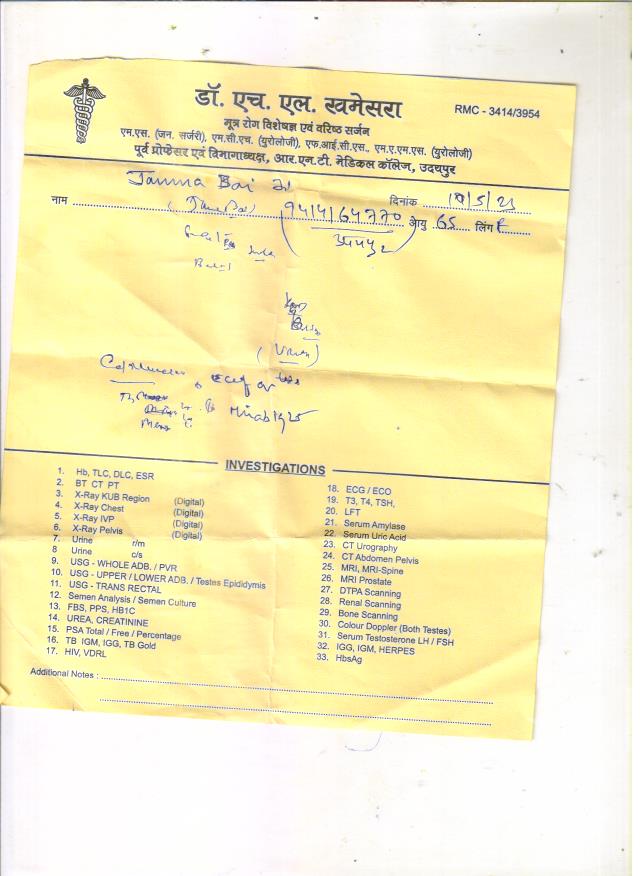 डॉ. एच. एल. खमेसरा
RMC - 3414/3954
मूत्र रोग विशेषज्ञ एवं वरिष्ठ सर्जन
एम.एस. (जन. सर्जरी), एम.सी.एच. (युरोलोजी), एफ.आई.सी.एस., एम.ए.एम.एस. (युरोलोजी)
पूर्व प्रोफेसर एवं विभागाध्यक्ष, आर.एन.टी. मेडिकल कॉलेज, उदयपुर
Jamna Bai
नाम
दिनांक
9414164770 आयु 65 लिंग F
INVESTIGATIONS
1. Hb, TLC, DLC, ESR
2. BT CT PT
3. X-Ray KUB Region (Digital)
4. X-Ray Chest (Digital)
5. X-Ray IVP (Digital)
6. X-Ray Pelvis (Digital)
7. Urine r/m
8 Urine c/s
9. USG - WHOLE ADB. / PVR
10. USG - UPPER / LOWER ADB. / Testes Epididymis
11. USG - TRANS RECTAL
12. Semen Analysis / Semen Culture
13. FBS, PPS, HB1C
14. UREA, CREATININE
15. PSA Total / Free / Percentage
16. TB IGM, IGG, TB Gold
17. HIV, VDRL
18. ECG / ECO
19. T3, T4, TSH,
20. LFT
21. Serum Amylase
22. Serum Uric Acid
23. CT Urography
24. CT Abdomen Pelvis
25. MRI, MRI-Spine
26. MRI Prostate
27. DTPA Scanning
28. Renal Scanning
29. Bone Scanning
30. Colour Doppler (Both Testes)
31. Serum Testosterone LH / FSH
32. IGG, IGM, HERPES
33. HbsAg
Additional Notes :